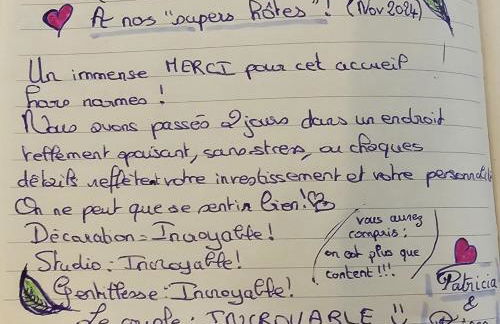 A nos "supers hôtes"! (Nov 2024)
Un immense MERCI pour cet accueil
hors normes !
Nous avons passés 2 jours dans un endroit
tellement apaisant, sans stress, ou chaques
détails reflètent votre investissement et votre personnalité
On ne peut que se sentir bien !
Décoration = Incroyable !
Studio : Incroyable !
Gentillesse : Incroyable !
Le couple : INCROYABLE !!
vous aurez
compris :
on est plus que
content !!!
Patricia
&